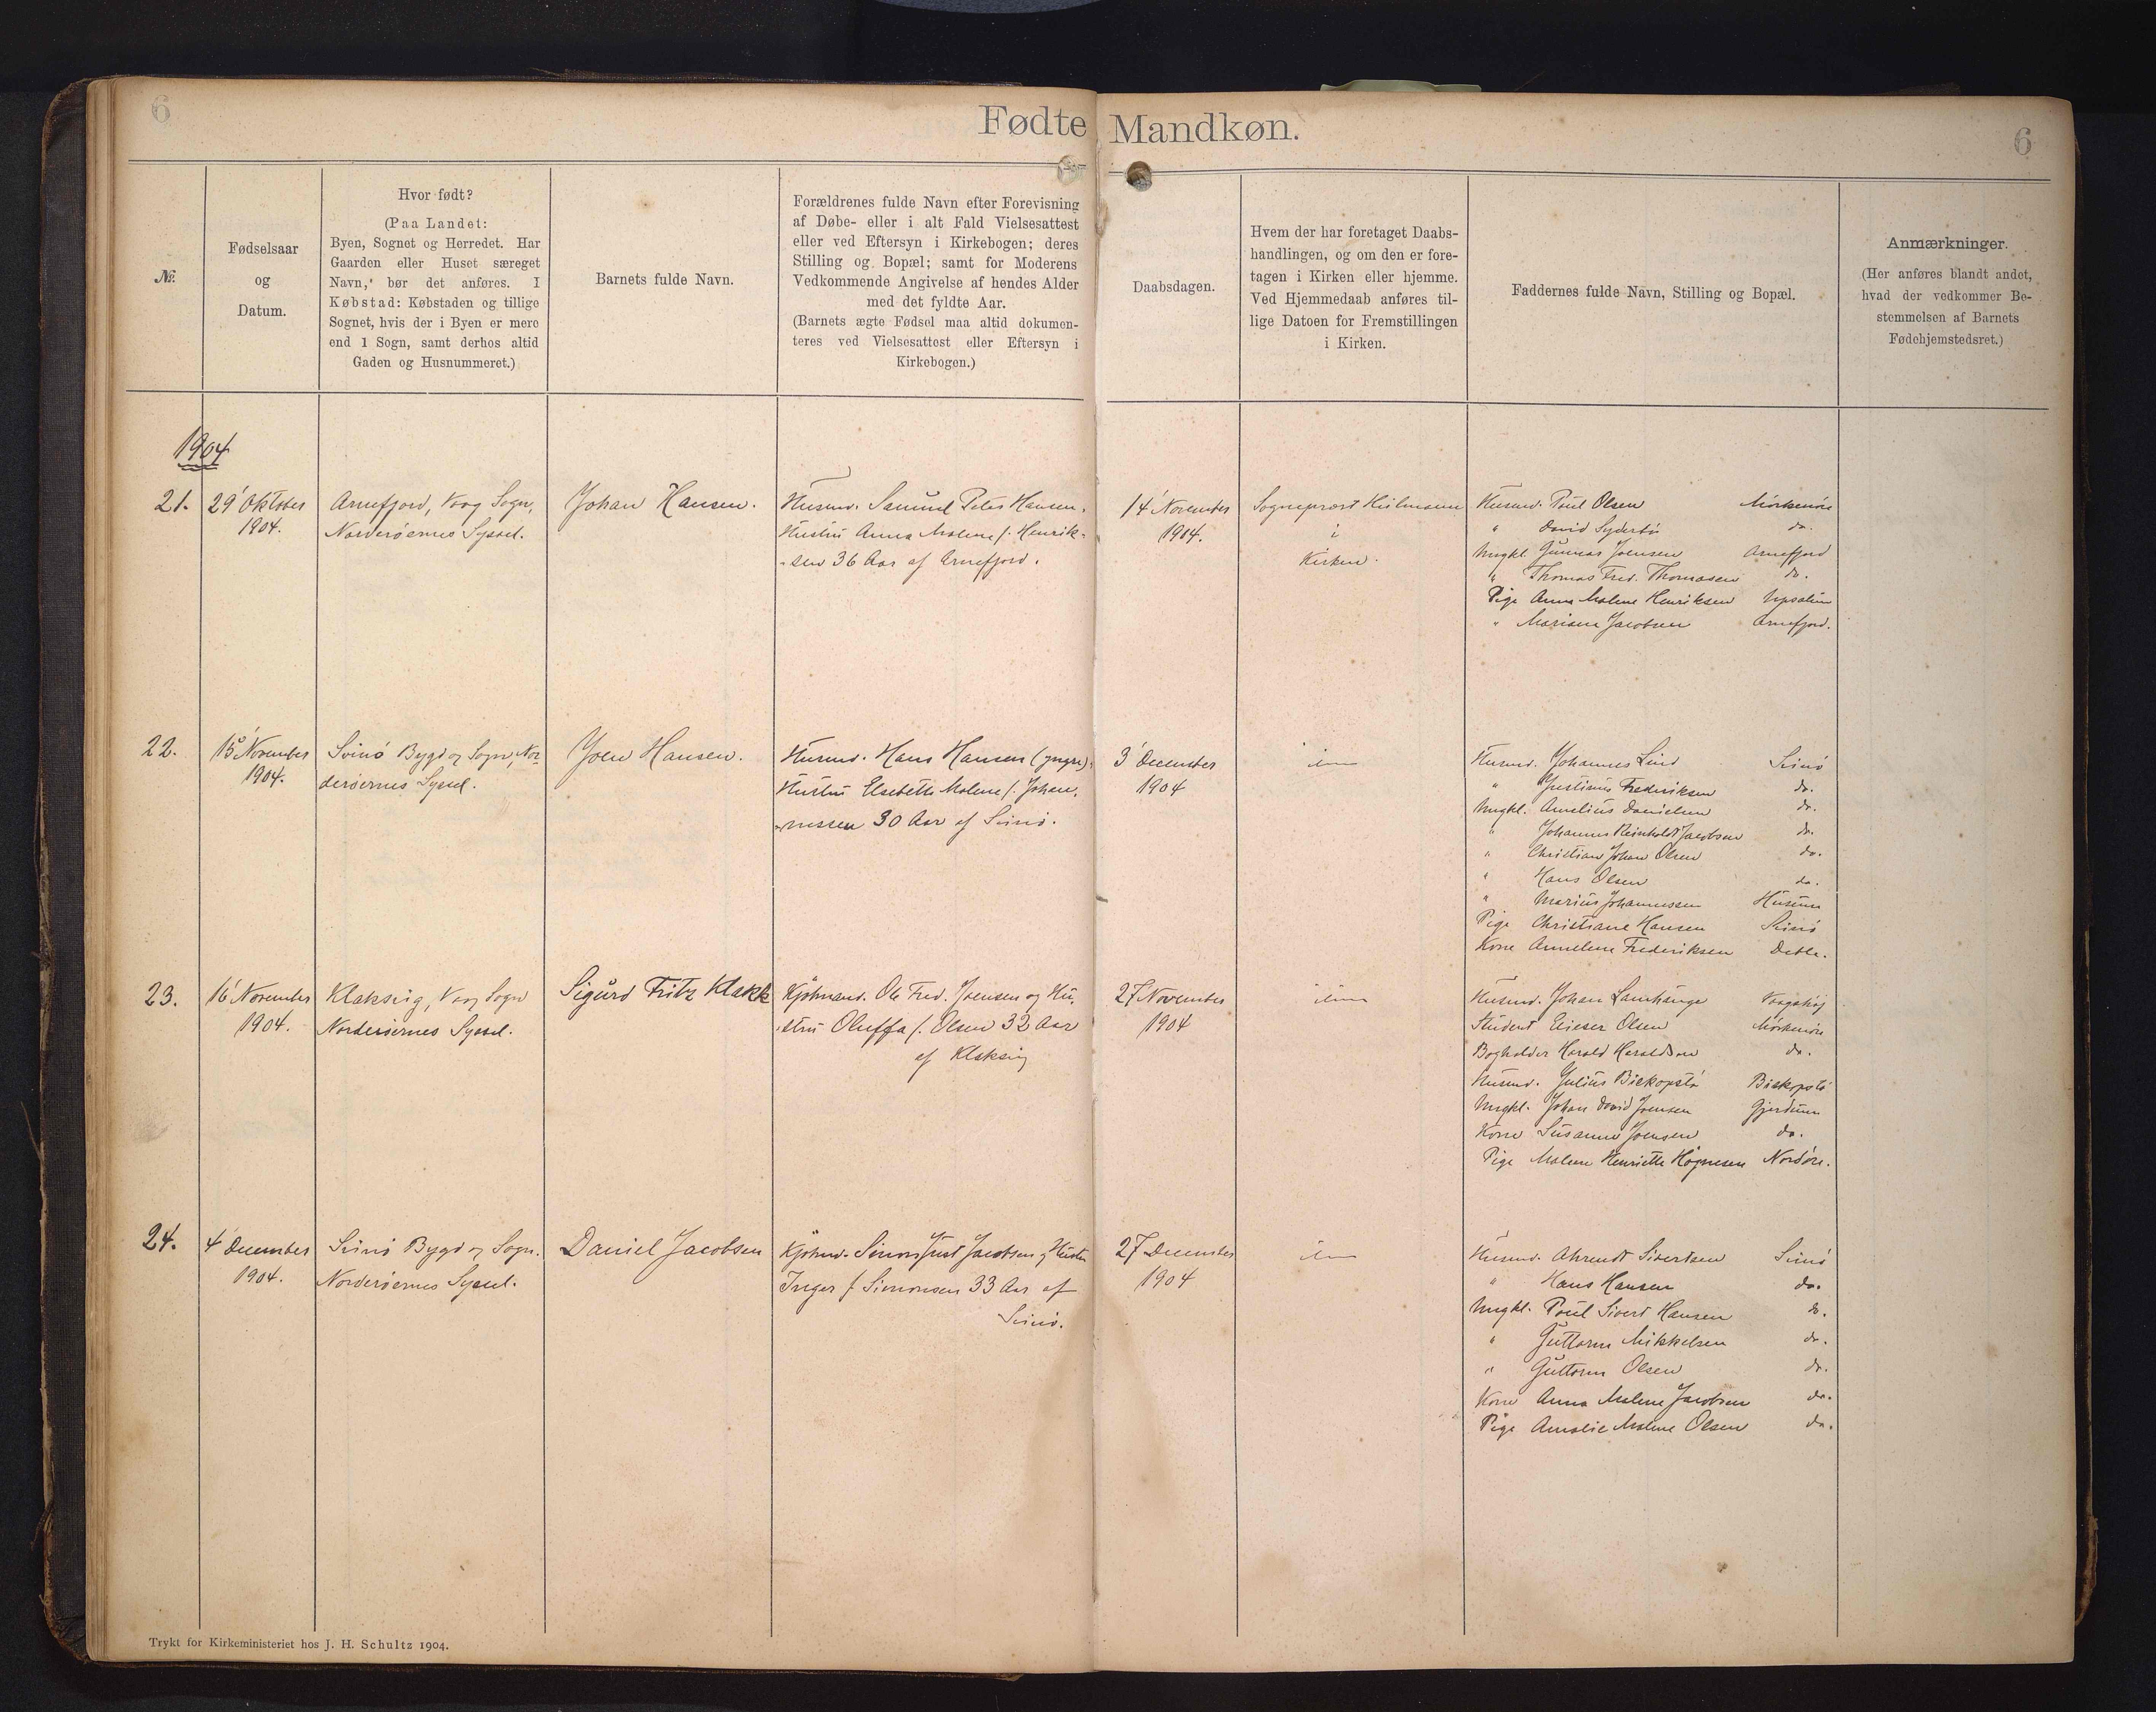 6
Fødte Mandkøn.
6
№.
Fødselsaar
og
Datum.
Hvor født?
(Paa Landet:
Byen, Sognet og Herredet. Har
Gaarden eller Huset særeget
Navn, bør det anføres. I
Købstad: Købstaden og tillige
Sognet, hvis der i Byen er mere
end 1 Sogn, samt derhos altid
Gaden og Husnummeret.)
Barnets fulde Navn.
Forældrenes fulde Navn efter Forevisning
af Døbe- eller i alt Fald Vielsesattest
eller ved Eftersyn i Kirkebogen; deres
Stilling og Bopæl; samt for Moderens
Vedkommende Angivelse af hendes Alder
med det fyldte Aar.
(Barnets ægte Fødsel maa altid dokumen-
teres ved Vielsesattest eller Eftersyn i
Kirkebogen.)
Daabsdagen.
Hvem der har foretaget Daabs-
handlingen, og om den er fore-
tagen i Kirken eller hjemme.
Ved Hjemmedaab anføres til-
lige Datoen for Fremstillingen
i Kirken.
Faddernes fulde Navn, Stilling og Bopæl.
Anmærkninger.
(Her anføres blandt andet,
hvad der vedkommer Be-
stemmelsen af Barnets
Fødehjemstedsret.)
1904
21.
29' Oktober
1904.
Arnefjord, Vaag Sogn,
Norderøernes Syssel.
Johan Hansen.
Husmd. Samuel Peter Hansen.
Hustru Anna Malene f. Henrik-
-sen 36 Aar af Arnefjord.
14' November
1904.
Sogneprost
i
Kirken.
Husmd. Poul Olsen Mörkenöre
" David Syderbö do.
Ungkl. Gunnar Joensen Arnefjord
" Thomas Fred. Thomasen do.
Pige Anna Malene Henriksen Upsalum
" Mariane Jacobsen Arnefjord.
22.
15' November
1904.
Svinö Bygd og Sogn, Nor-
derøernes Syssel.
Joen Hansen.
Husmd. Hans Hansen (yngre).
Hustru Elsebeth Malene f. Johan-
-nessen 30 Aar af Svinö.
3' December
1904
Husmd. Johannes Lind Svinö
" Justinus Frederiksen do.
Ungkl. Amelius Danielsen do.
" Johannes Reinholdt Jacobsen do.
" Christian Johan Olsen do.
" Hans Olsen do.
" Marius Johannessen Husum
Pige Christiane Hansen Svinö
Kone Annelene Frederiksen Detto.
23.
16' November
1904.
Klaksvig, Vaag Sogn
Norderøernes Syssel.
Sigurd Fritz Klakk
Kjöbmand. Ole Fred. Joensen og Hu-
-stru Oluffa f. Olsen 32 Aar
af Klaksvig
27' November
1904
Husmd. Johan Lamhauge Vaagshöj
Student Elieser Olsen Mörkenöre
Bogholder Harald Haraldsen do.
Husmd. Julius Biskopstö Biskopstö
Ungkl. Johan David Joensen Gjerdum
Kone Susanne Joensen do.
Pige Malene Henriette Högnesen Nordöre.
24.
4' December
1904.
Svinö Bygd og Sogn.
Norderøernes Syssel.
Daniel Jacobsen
Kjöbmd. Simon Just Jacobsen og Hustru
Inger f. Simonsen 33 Aar af
Svinö.
27' December
1904
Husmd. Ahrendt Sivertsen Svinö
" Hans Hansen do.
Ungkl. Poul Sivert Hansen do.
" Guttorm Mikkelsen do.
" Guttorm Olsen do.
Kone Anna Malene Jacobsen do.
Pige Amalie Malene Olsen do.
Trykt for Kirkeministeriet hos J. H. Schultz 1904.